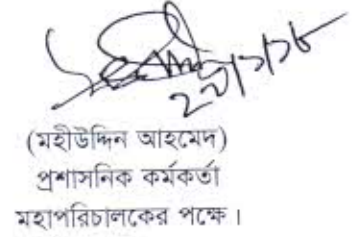 (মহীউদ্দিন আহমেদ)
প্রশাসনিক কর্মকর্তা
মহাপরিচালকের পক্ষে।